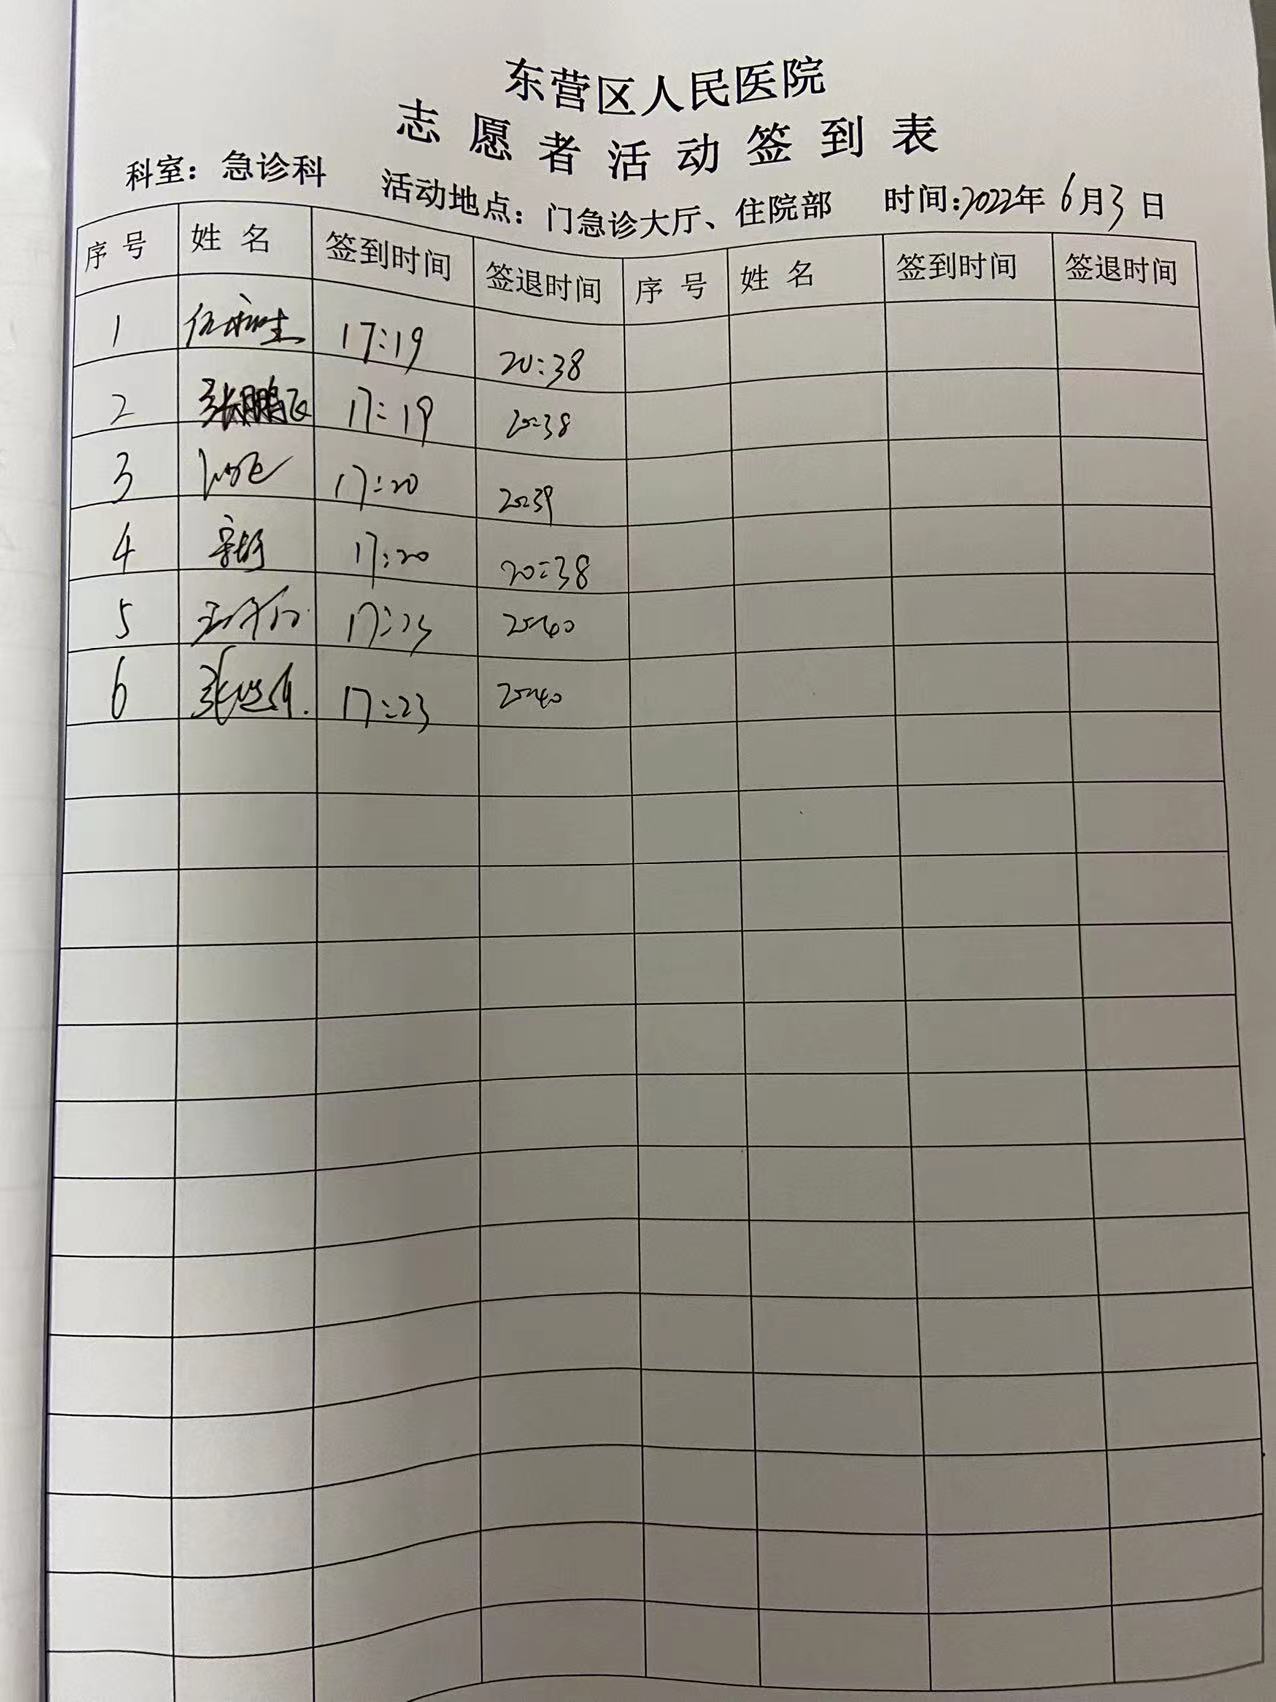 东营区人民医院
志愿者活动签到表
科室：急诊科 活动地点：门急诊大厅、住院部 时间：2022年6月3日
序号 姓名 签到时间 签退时间 序号 姓名 签到时间 签退时间
1 17:19 20:38
2 张鹏飞 17:19 20:38
3 17:20 20:39
4 17:20 20:38
5 17:23 20:40
6 17:23 20:40